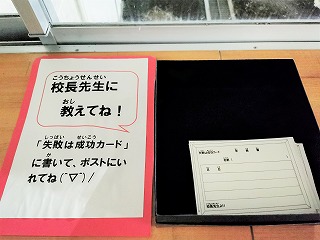 こうちょうせんせい
校長先生に
おし
教えてね！
しっぱい せいこう
「失敗は成功カード」
か
に書いて、ポストにい
れてね(¯▽¯)/